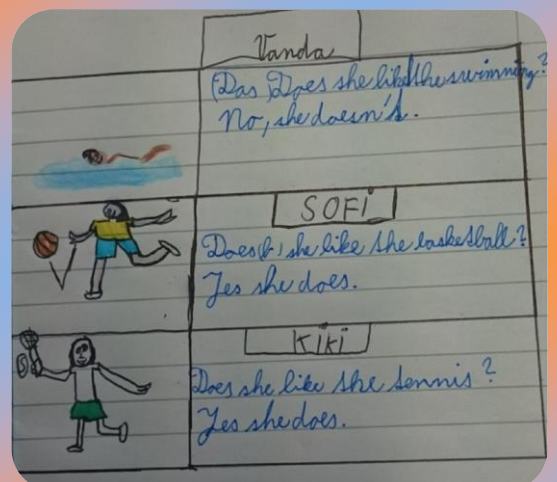 Vanda
(Das) Does she like the swimming?
No, she doesn't.
SOFi
Does(b) she like the basketball?
Yes she does.
Kiki
Does she like the tennis?
Yes she does.